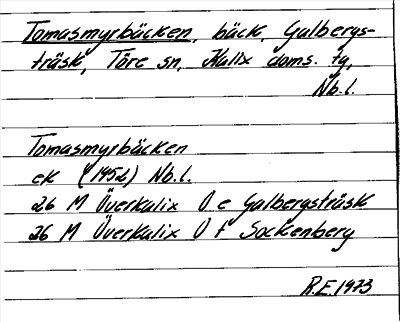 Tomasmyrbäcken, bäck, Galbergs-
träsk, Töre sn, Kalix doms. tg,
Nb.l.
Tomasmyrbäcken
ek (1952) Nb.l.
26 M Överkalix O e Galbergsträsk
26 M Överkalix O f Sockenberg
R.E. 1973